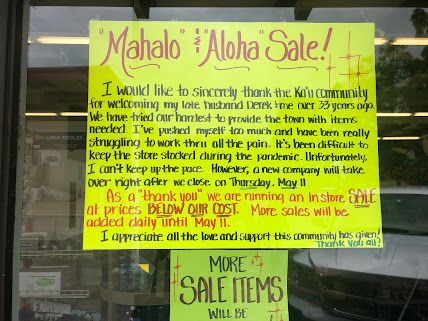 "Mahalo" & "Aloha" Sale!
I would like to sincerely thank the Ka'u community
for welcoming my late husband Derek & me over 33 years ago.
We have tried our hardest to provide the town with items
needed. I've pushed myself too much and have been really
struggling to work thru all the pain. It's been difficult to
keep the store stocked during the pandemic. Unfortunately,
I can't keep up the pace. However, a new company will take
over right after we close on Thursday, May 11.
As a "thank you" we are running an In store SALE
at prices BELOW OUR COST. More sales will be
added daily until May 11.
I appreciate all the love and support this community has given!
Thank you all!
MORE
SALE ITEMS
WILL BE